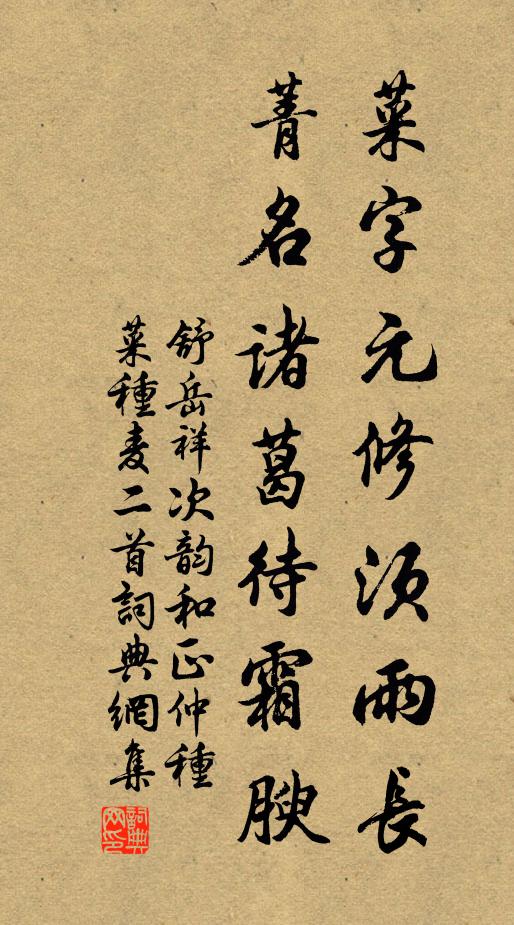 菜字元修須雨長
菁名諸葛待霜腴
舒岳祥次韵和正仲種
菜種麦二首詞典網集
詞典網印